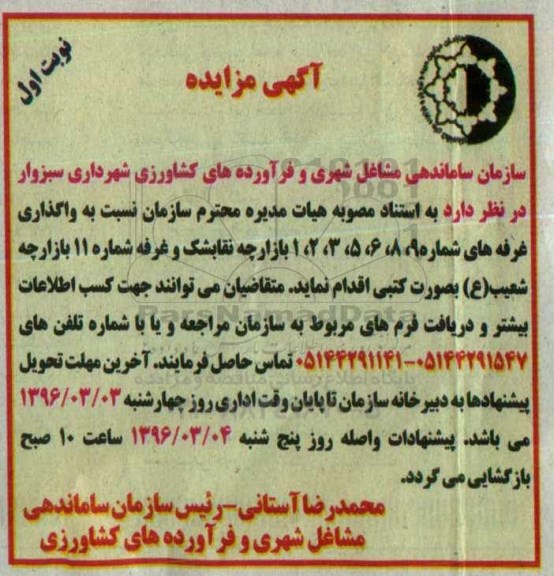 نوبت اول
آگهی مزایده
سازمان ساماندهی مشاغل شهری و فرآورده های کشاورزی شهرداری سبزوار
در نظر دارد به استناد مصوبه هیات مدیره محترم سازمان نسبت به واگذاری
غرفه های شماره۹، ۸، ۶، ۵، ۳، ۲، ۱ بازارچه نقابشک و غرفه شماره ۱۱ بازارچه
شعیب(ع) بصورت کتبی اقدام نماید. متقاضیان می توانند جهت کسب اطلاعات
بیشتر و دریافت فرم های مربوط به سازمان مراجعه و یا با شماره تلفن های
۰۵۱۴۴۲۹۱۵۴۷-۰۵۱۴۴۲۹۱۱۴۱ تماس حاصل فرمایند. آخرین مهلت تحویل
پیشنهادها به دبیرخانه سازمان تا پایان وقت اداری روز چهارشنبه ۱۳۹۶/۰۳/۰۳
می باشد. پیشنهادات واصله روز پنج شنبه ۱۳۹۶/۰۳/۰۴ ساعت ۱۰ صبح
بازگشایی می گردد.
محمدرضا آستانی-رئیس سازمان ساماندهی
مشاغل شهری و فرآورده های کشاورزی
ParsNamadData